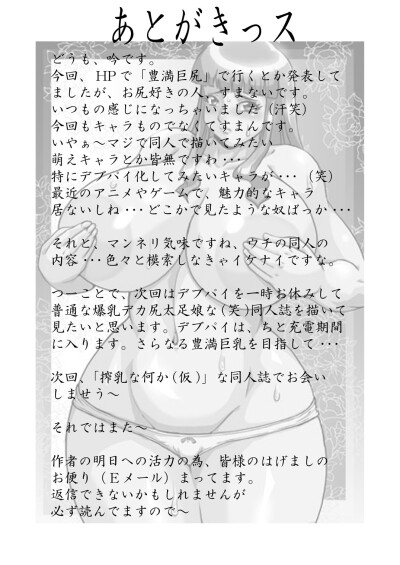 あとがきっス
どうも、吟です。
今回、HPで「豊満巨尻」で行くとか発表して
ましたが、お尻好きの人、すまないです。
いつもの感じになっちゃいました（汗笑）
今回もキャラものでなくてすまんです。
いやぁ～マジで同人で描いてみたい
萌えキャラとか皆無ですわ・・・
特にデブパイ化してみたいキャラが・・・（笑）
最近のアニメやゲームで、魅力的なキャラ
居ないしね・・・どこかで見たような奴ばっか・・・
それと、マンネリ気味ですね、ウチの同人の
内容・・・色々と模索しなきゃイケナイですな。
つーことで、次回はデブパイを一時お休みして
普通な爆乳デカ尻太足娘な（笑）同人誌を描いて
見たいと思います。デブパイは、ちと充電期間
に入ります。さらなる豊満巨乳を目指して・・・
次回、「搾乳な何か（仮）」な同人誌でお会い
しませう～
それではまた～
作者の明日への活力の為、皆様のはげましの
お便り（Ｅメール）まってます。
返信できないかもしれませんが
必ず読んでますので～